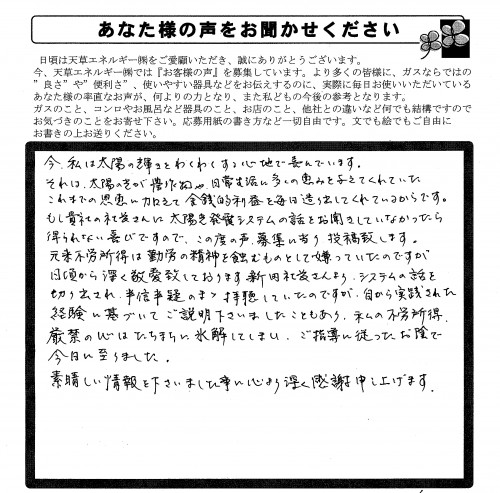 あなた様の声をお聞かせください
日頃は天草エネルギー㈱をご愛顧いただき、誠にありがとうございます。
今、天草エネルギー㈱では『お客様の声』を募集しています。より多くの皆様に、ガスならではの
”良さ”や”便利さ”、使いやすい器具などをお伝えするのに、実際に毎日お使いいただいている
あなた様の率直なお声が、何よりの力となり、また私どもの今後の参考となります。
ガスのこと、コンロやお風呂など器具のこと、お店のこと、他社との違いなど何でも結構ですので
お気づきのことをお寄せ下さい。応募用紙の書き方など一切自由です。文でも絵でもご自由に
お書きの上お送りください。
今、私は太陽の輝きをわくわくする心地で喜んでいます。
それは、太陽の光が農作物や、日常生活に多くの恵みを与えてくれていた
これまでの恩恵に加えて金銭的利益を毎日造り出してくれているからです。
もし貴社の社長さんに太陽光発電システムの話をお聞きしていなかったら
得られない喜びですので、この度の声募集に当り投稿致します。
元来不労所得は勤労の精神を蝕むものとして嫌っていたのですが
日頃から深く敬愛致しております新田社長さんより、システムの話を
切り出され、半信半疑のまゝ拝聴していたのですが、自から実践された
経験に基づいてご説明下さいましたこともあり、私の不労所得
厳禁の心はたちまちに氷解してしまい、ご指導に従ったお陰で
今日に至りました。
素晴しい情報を下さいました事に心より深く感謝申し上げます。